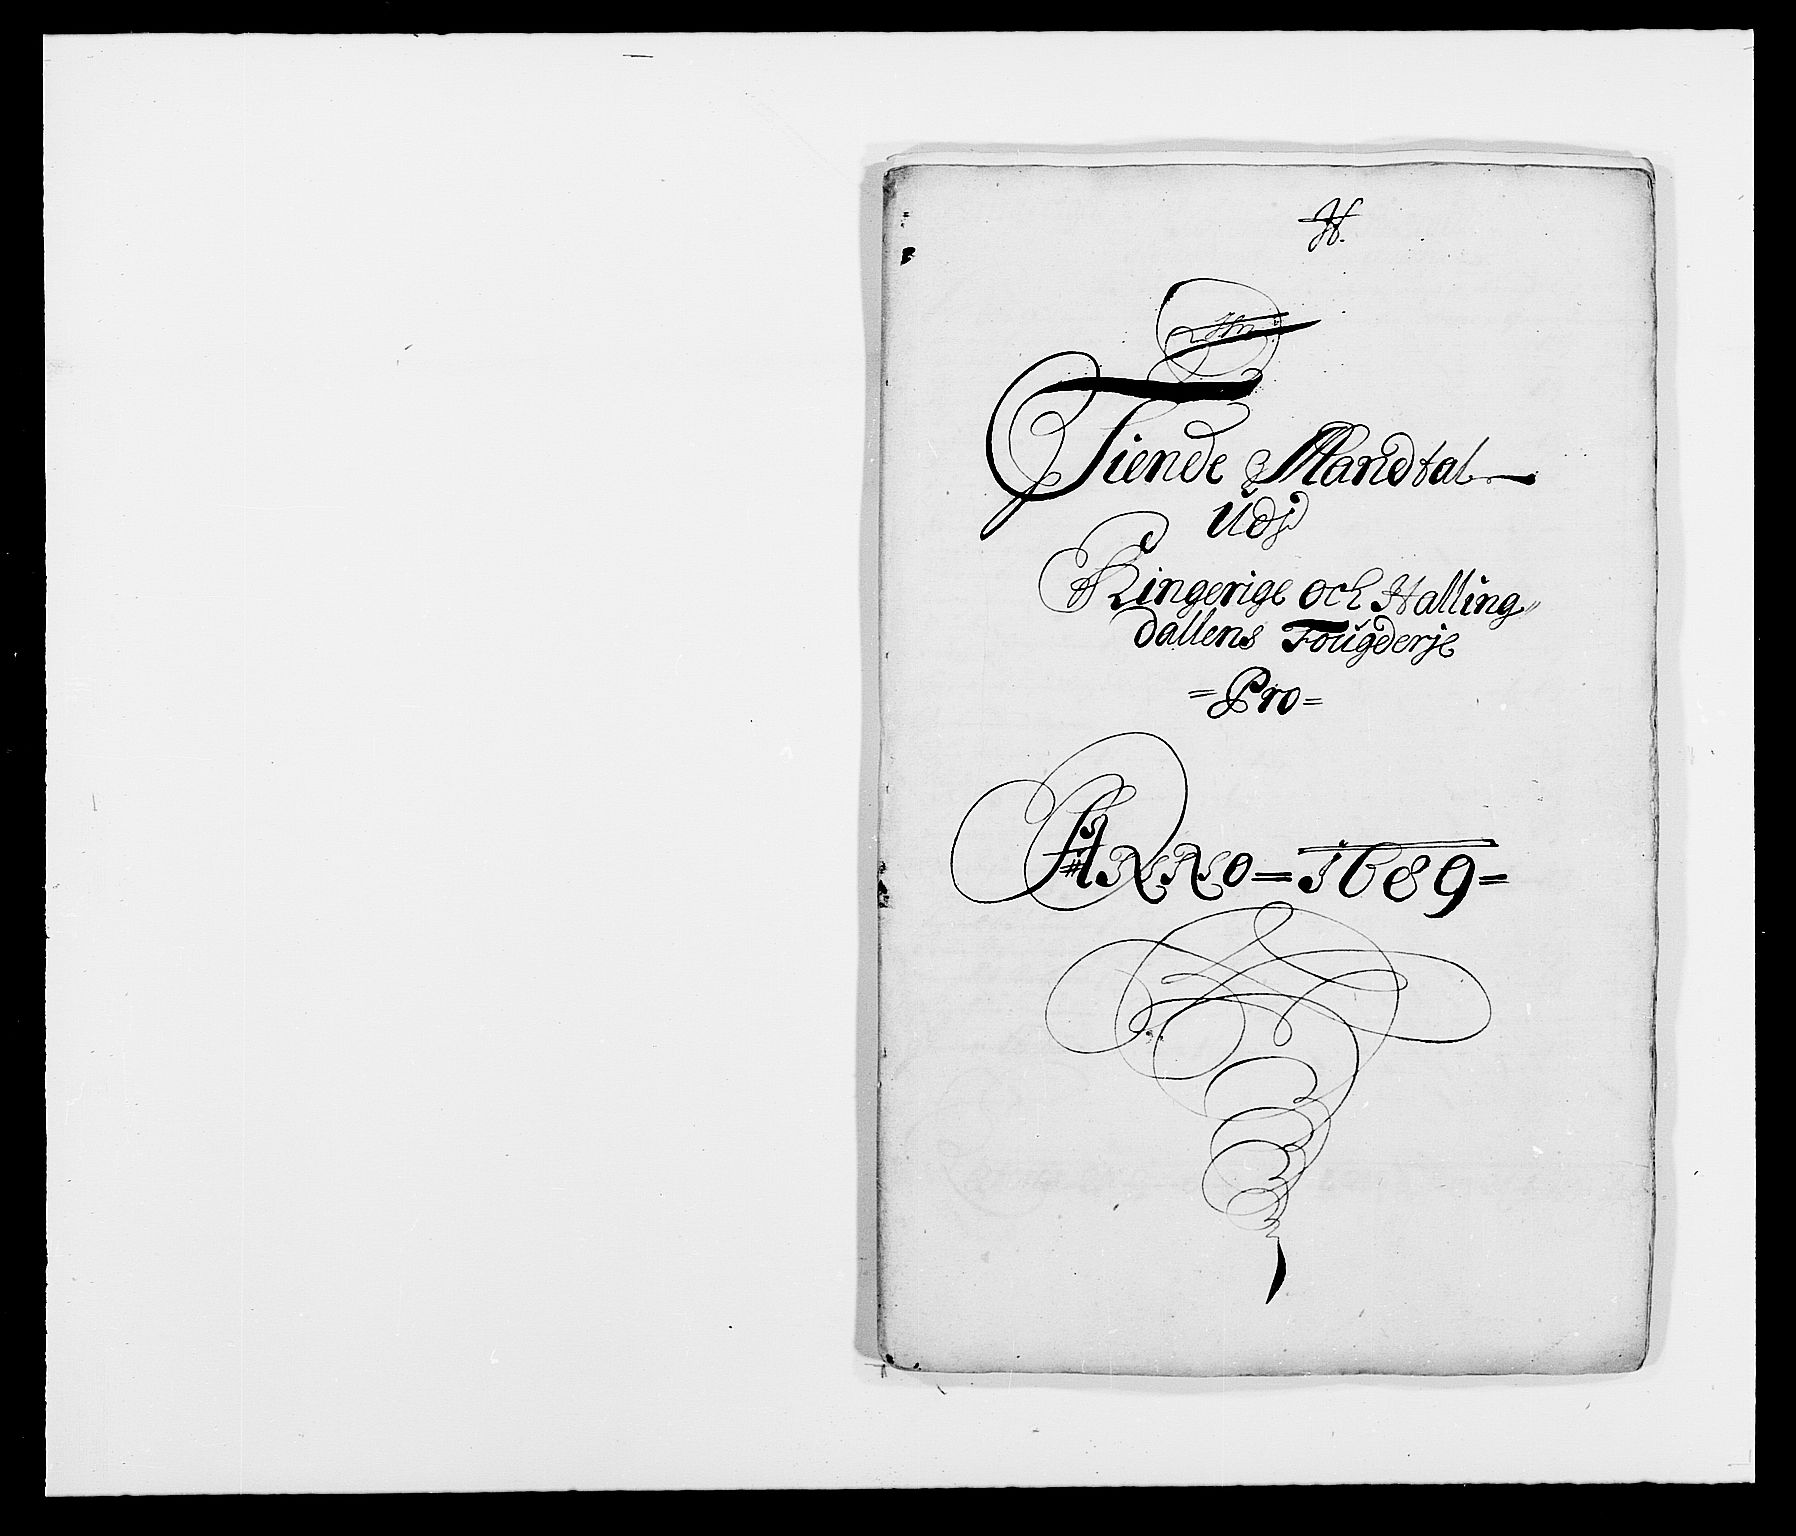 H.
Tiende Mandtal
Udj
Ringerige och Halling
dallens Fougderje
=Pro=
ANNO=1689=